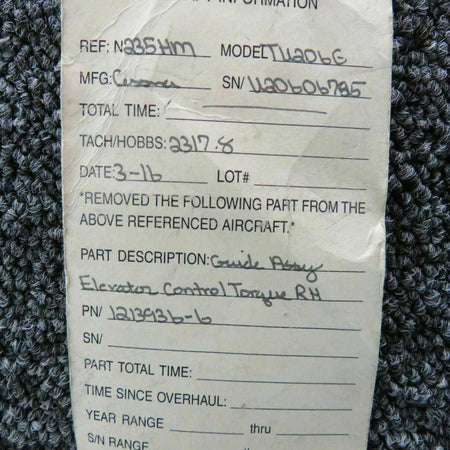 INFORMATION
REF: N235HM MODEL TU206G
MFG: Cessna SN/ U20606795
TOTAL TIME:
TACH/HOBBS: 2317.8
DATE: 3-16 LOT#
"REMOVED THE FOLLOWING PART FROM THE
ABOVE REFERENCED AIRCRAFT."
PART DESCRIPTION: Guide Assy
Elevator Control Torque RH
PN/ 1213936-6
SN/
PART TOTAL TIME:
TIME SINCE OVERHAUL:
YEAR RANGE thru
S/N RANGE